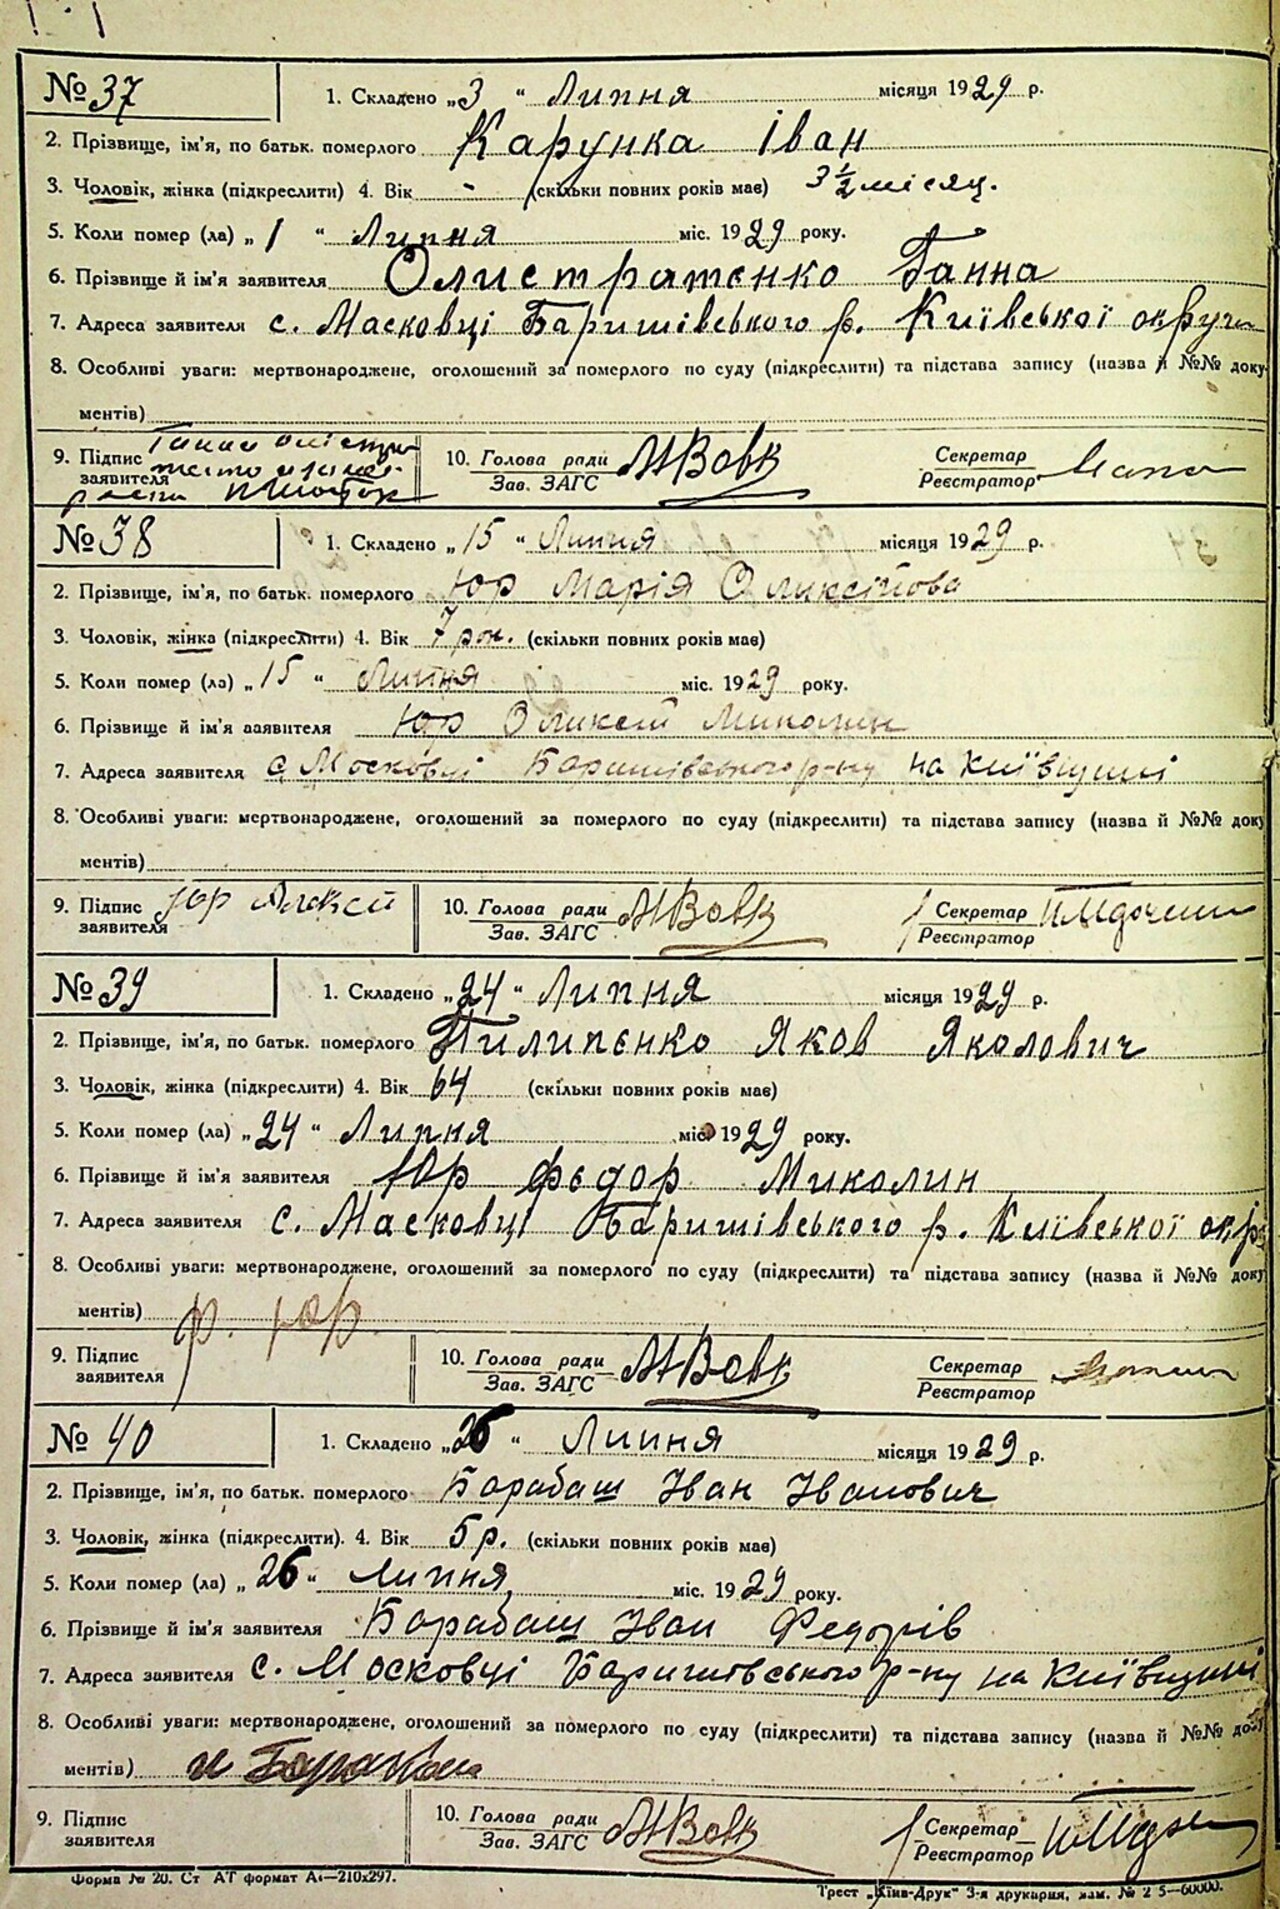 № 37 1. Складено „3“ Липня місяця 1929 р.
2. Прізвище, ім'я, по батьк. померлого Карунка Іван
3. Чоловік, жінка (підкреслити) 4. Вік - (скільки повних років має) 3 ½ місяц.
5. Коли помер (ла) „1“ Липня міс. 1929 року.
6. Прізвище й ім'я заявителя Олистратєнко Ганна
7. Адреса заявителя с. Масковці Баришівського р. Київської округи
8. Особливі уваги: мертвонароджене, оголошений за померлого по суду (підкреслити) та підстава запису (назва й №№ доку-
ментів)
9. Підпис заявителя 10. Голова ради Зав. ЗАГС Вовк Секретар Реєстратор
№ 38 1. Складено „15“ Липня місяця 1929 р.
2. Прізвище, ім'я, по батьк. померлого Юр Марія Оликсійова
3. Чоловік, жінка (підкреслити) 4. Вік 7 рок. (скільки повних років має)
5. Коли помер (ла) „15“ Липня міс. 1929 року.
6. Прізвище й ім'я заявителя Юр Оликсій Миколин
7. Адреса заявителя с Московці Баришівського р-ну на Київщині
8. Особливі уваги: мертвонароджене, оголошений за померлого по суду (підкреслити) та підстава запису (назва й №№ доку
ментів)
9. Підпис заявителя Юр Алексей 10. Голова ради Зав. ЗАГС Вовк Секретар Реєстратор
№ 39 1. Складено „24“ Липня місяця 1929 р.
2. Прізвище, ім'я, по батьк. померлого Пилипєнко Яков Яколович
3. Чоловік, жінка (підкреслити) 4. Вік 64 (скільки повних років має)
5. Коли помер (ла) „24“ Липня міс. 1929 року.
6. Прізвище й ім'я заявителя Юр Фьодор Миколин
7. Адреса заявителя с. Масковці Баришівського р. Київської окр
8. Особливі уваги: мертвонароджене, оголошений за померлого по суду (підкреслити) та підстава запису (назва й №№ доку
ментів) Ф. Юр
9. Підпис заявителя 10. Голова ради Зав. ЗАГС Вовк Секретар Реєстратор
№ 40 1. Складено „26“ Липня місяця 1929 р.
2. Прізвище, ім'я, по батьк. померлого Барабаш Іван Іванович
3. Чоловік, жінка (підкреслити). 4. Вік 5 р. (скільки повних років має)
5. Коли помер (ла) „26“ липня міс. 1929 року.
6. Прізвище й ім'я заявителя Барабаш Іван Федорів
7. Адреса заявителя с. Московці Баришівського р-ну на Київщині
8. Особливі уваги: мертвонароджене, оголошений за померлого по суду (підкреслити) та підстава запису (назва й №№ доку
ментів)
9. Підпис заявителя 10. Голова ради Зав. ЗАГС Вовк Секретар Реєстратор
Форма № 20. Ст АТ формат А4—210х297.
Трест „Київ-Друк“ 3-я друкарня, зам. № 2 5—60000.